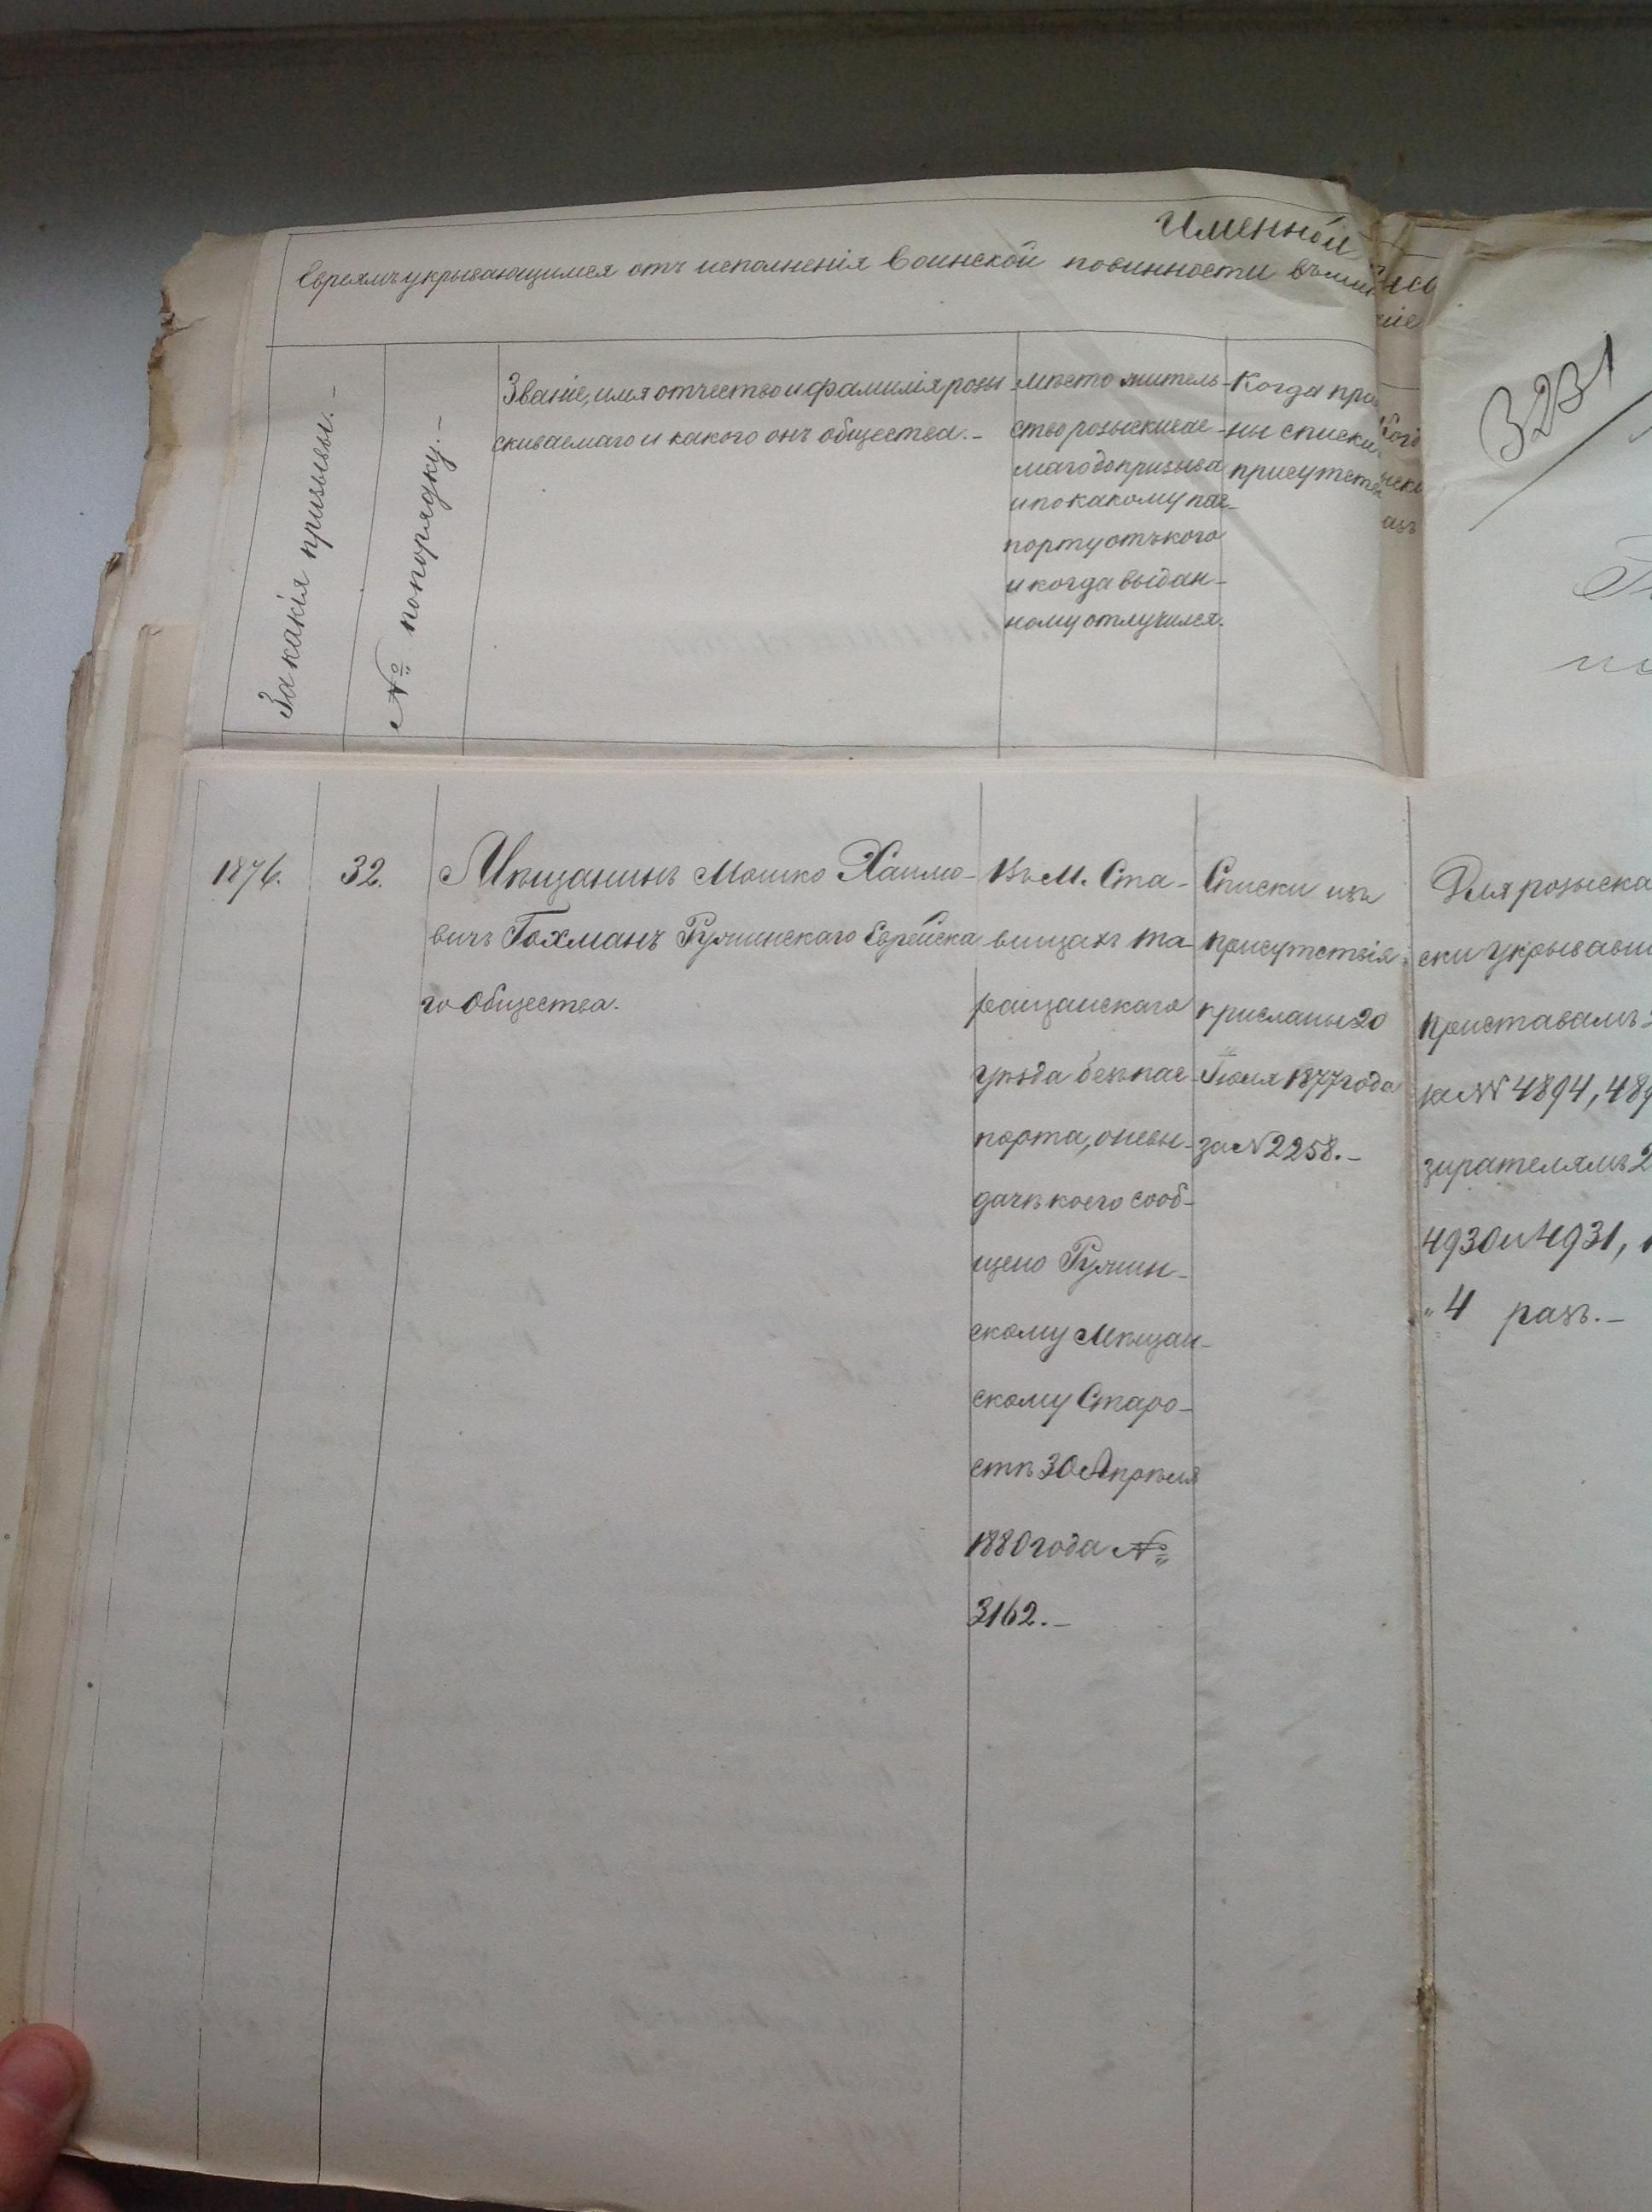 Именной
Евреямъ укрывающимся отъ исполненія воинской повинности въ
За какія призывы.-
№ по порядку.-
Званіе, имя отчество и фамилія розы-
скиваемаго и какого онъ общества.-
мѣсто житель-
ство розыскивае-
маго до призыва
и по какому пас-
порту отъ кого
и когда выдан-
ному отлучился.
Когда при
ны списки
присутств
3231
1876.
32.
Мѣщанинъ Мошко Хаимо-
вичъ Гохманъ Ружинскаго Еврейска
го Общества.
Въ М. Ста-
вищахъ та-
ращанскаго
уѣзда безъ пас-
порта, о невы-
дачѣ коего сооб-
щено Ружин-
скому Мѣщан-
скому Старо-
стѣ 30 Апрѣля
1880 года №
3162.-
Списки изъ
присутствія
присланы 20
Іюля 1877 года
за № 2258.-
Для розыска
ски укрывавш
приставамъ
за №№ 4894, 489
зирателямъ 2
4930 и 4931,
" 4 разъ.-